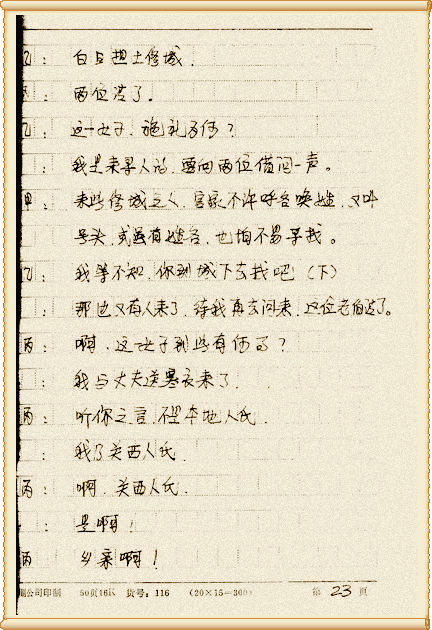 ：白日担土修城.
：两位请了。
：这一女子，施礼为何？
：我是来寻人的，要向两位借问一声。
甲：来此修城之人，官家不许呼名唤姓，只叫
号头，或还有姓名，也怕不易寻找。
：我等不知，你到城下去找吧（下）
：那边又有人来了，待我再去问来，这位老伯请了。
丙：啊，这女子到此有何事？
：我与丈夫送寒衣来了.
丙：听你之言，不是本地人氏.
：我乃关西人氏.
丙：啊，关西人氏.
：是啊！
丙：乡亲啊！
公司印制 50页16K 货号：116 (20×15=300) 第 23 页